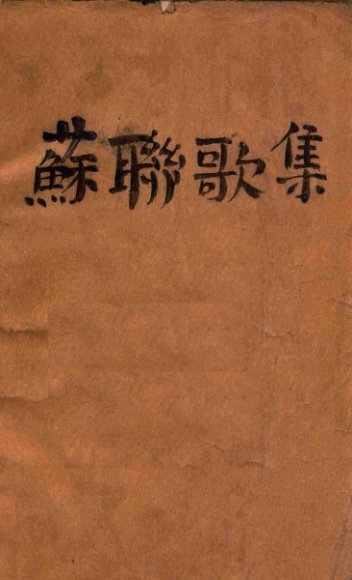 蘇聯歌集